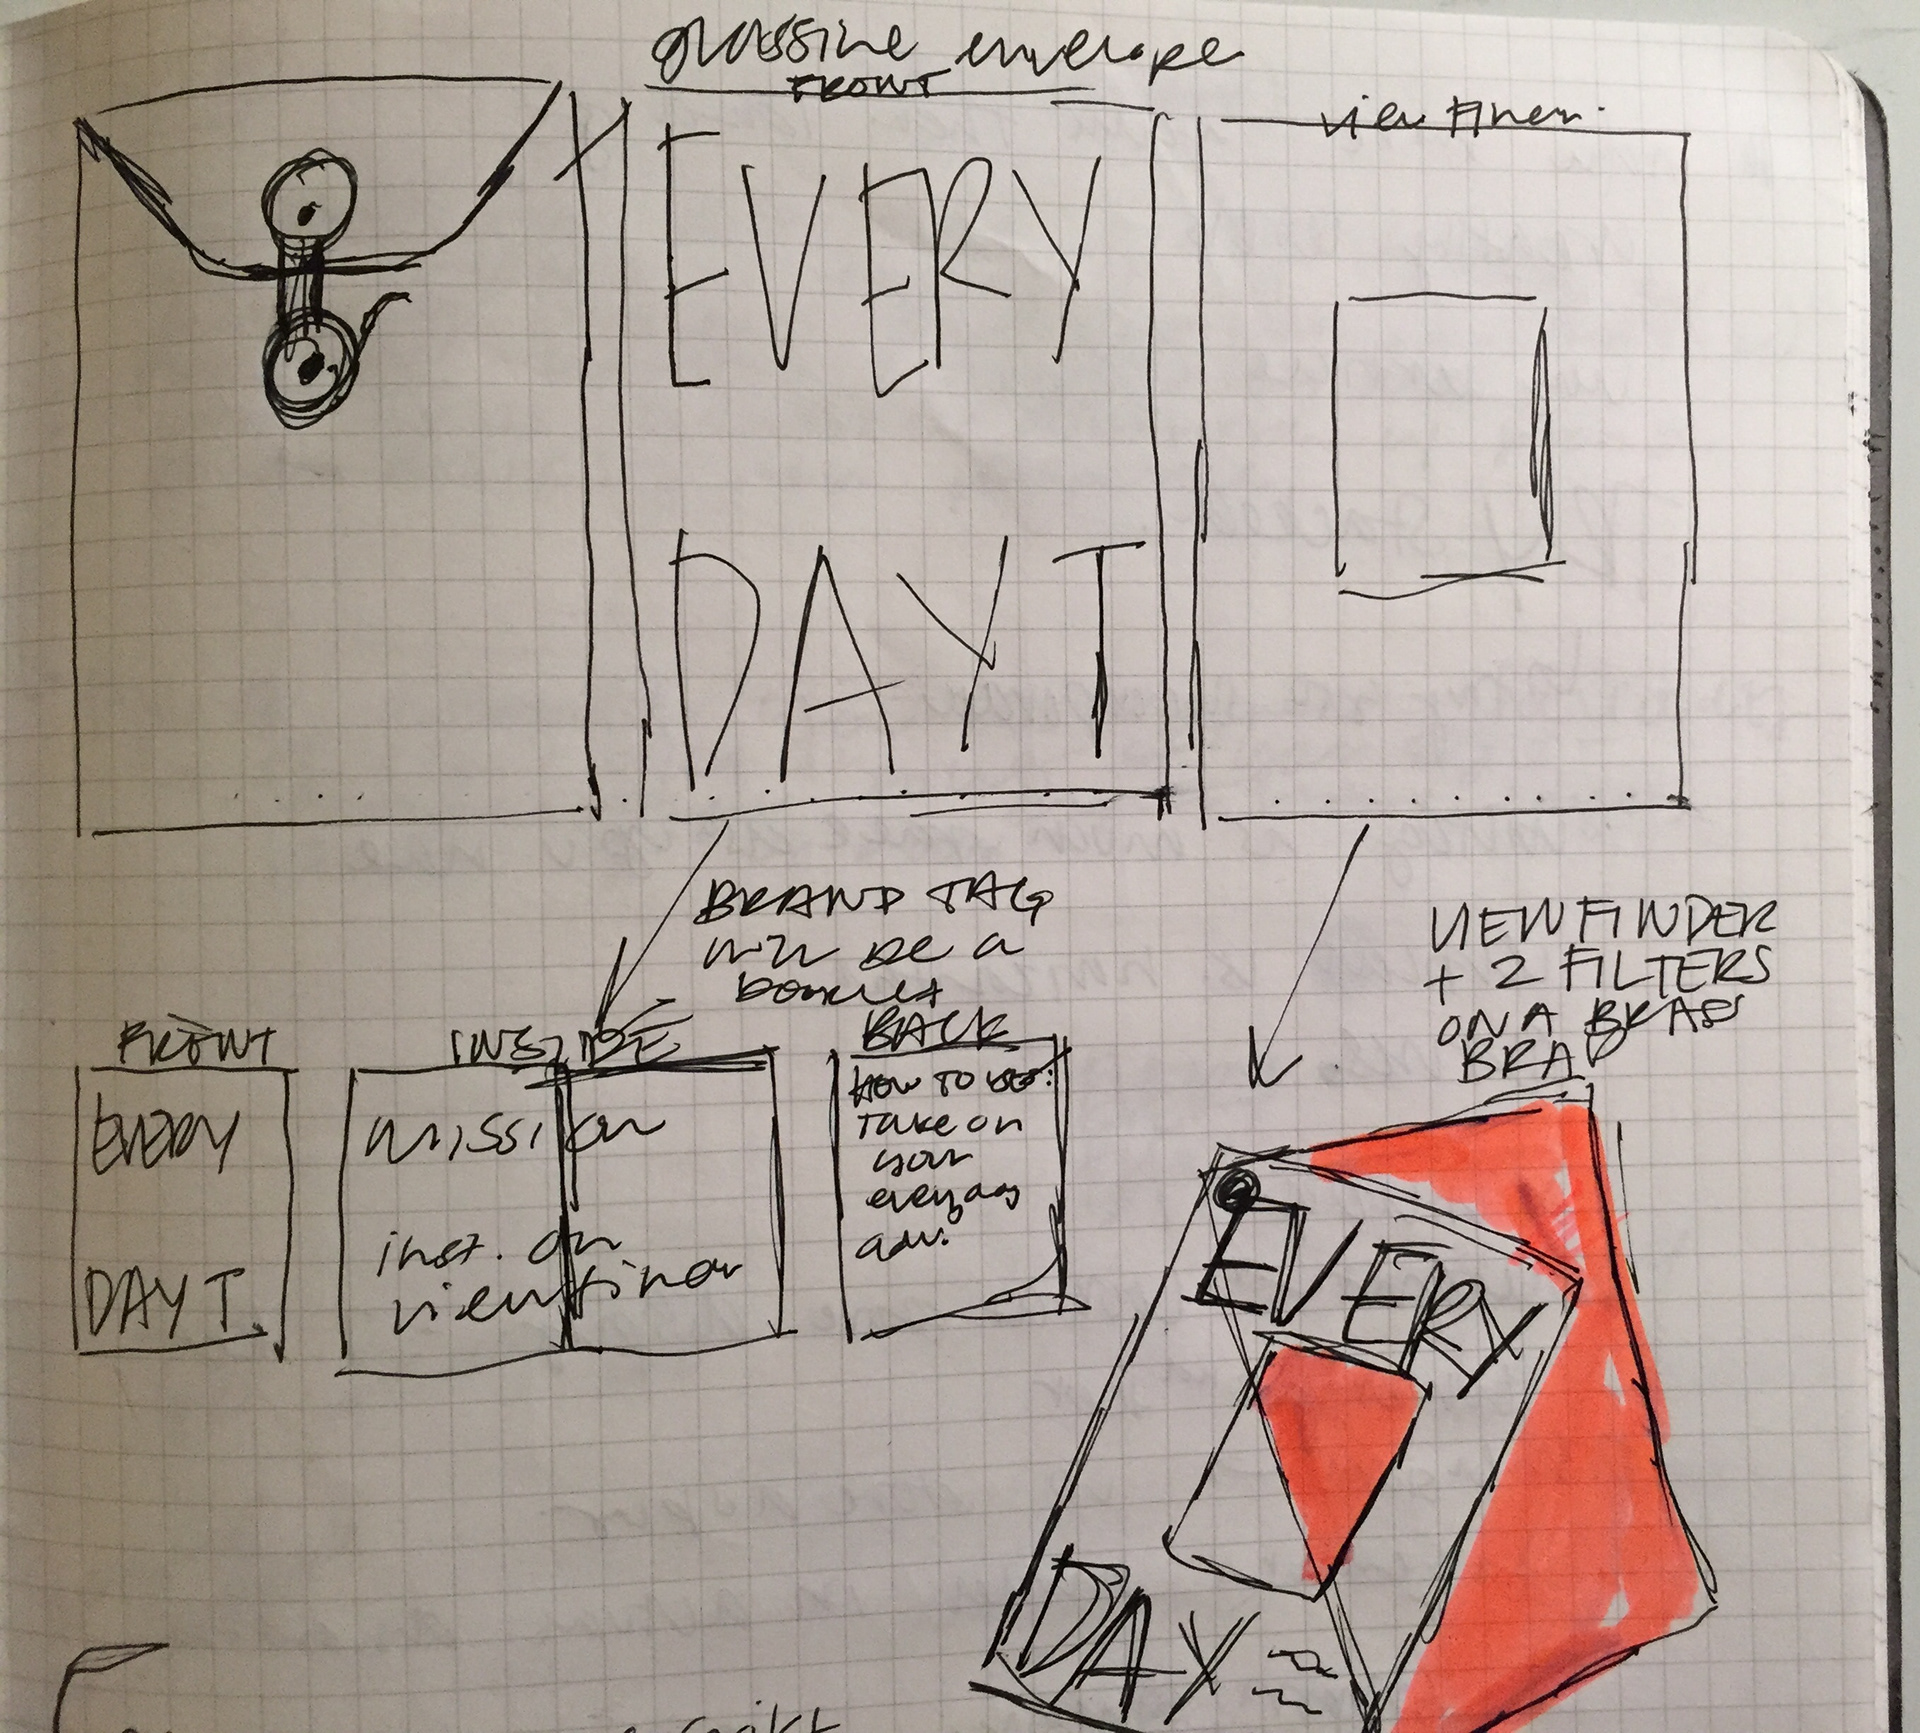 glassine envelope
FRONT
view finer
EVERY
DAY T
BRAND TAG
will be a
booklet
VIEWFINDER
+ 2 FILTERS
ON A BRASS
BRAD
FRONT
INSIDE
BACK
EVERY
DAY T.
mission
inst. on
viewfinder
HOW TO USE:
Take on
your
everyday
adv.
EVERY
DAY